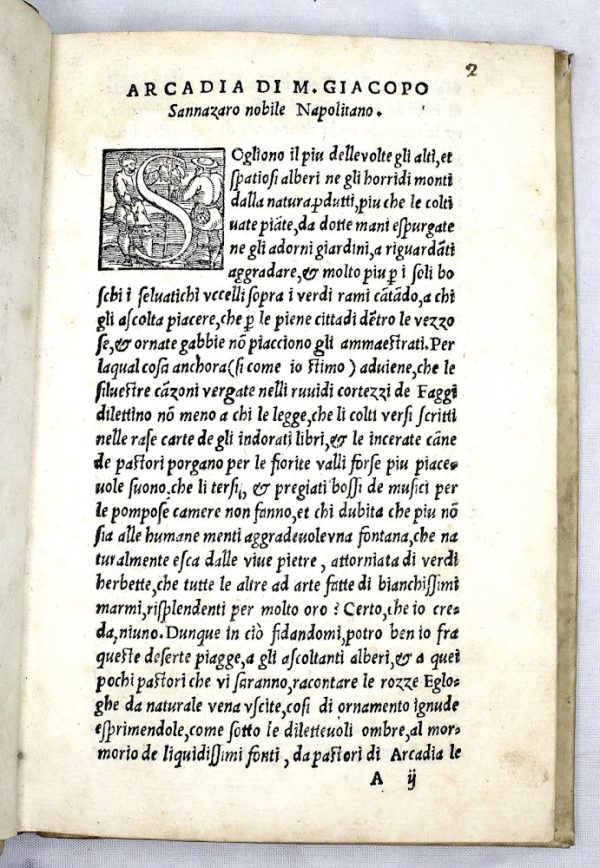 2
ARCADIA DI M. GIACOPO
Sannazaro nobile Napolitano.
SOgliono il piu dellevolte gli alti, et
spatiosi alberi ne gli horridi monti
dalla natura ꝓdutti, piu che le colti
uate piãte, da dotte mani espurgate
ne gli adorni giardini, a riguardãti
aggradare, & molto piu ꝑ i soli bo
schi i seluatichi vccelli sopra i verdi rami cãtãdo, a chi
gli ascolta piacere, che ꝑ le piene cittadi dẽtro le vezzo
se, & ornate gabbie nõ piacciono gli ammaestrati. Per
laqual cosa anchora (si come io stimo) aduiene, che le
siluestre cãzoni vergate nelli ruuidi cortezzi de Faggi
dilettino nõ meno a chi le legge, che li colti versi scritti
nelle rase carte de gli indorati libri, & le incerate cãne
de pastori porgano per le fiorite valli forse piu piace-
uole suono. che li tersi, & pregiati bossi de musici per
le pompose camere non fanno, et chi dubita che piu nõ
sia alle humane menti aggradeuolevna fontana, che na
turalmente esca dalle viue pietre, attorniata di verdi
herbette, che tutte le altre ad arte fatte di bianchissimi
marmi, risplendenti per molto oro? Certo, che io cre-
da, niuno. Dunque in ciò fidandomi, potro ben io fra
queste deserte piagge, a gli ascoltanti alberi, & a quei
pochi pastori che vi saranno, racontare le rozze Eglo-
ghe da naturale vena vscite, cosi di ornamento ignude
esprimendole, come sotto le dilettevoli ombre, al mor-
morio de liquidissimi fonti, da pastori di Arcadia le
A ij